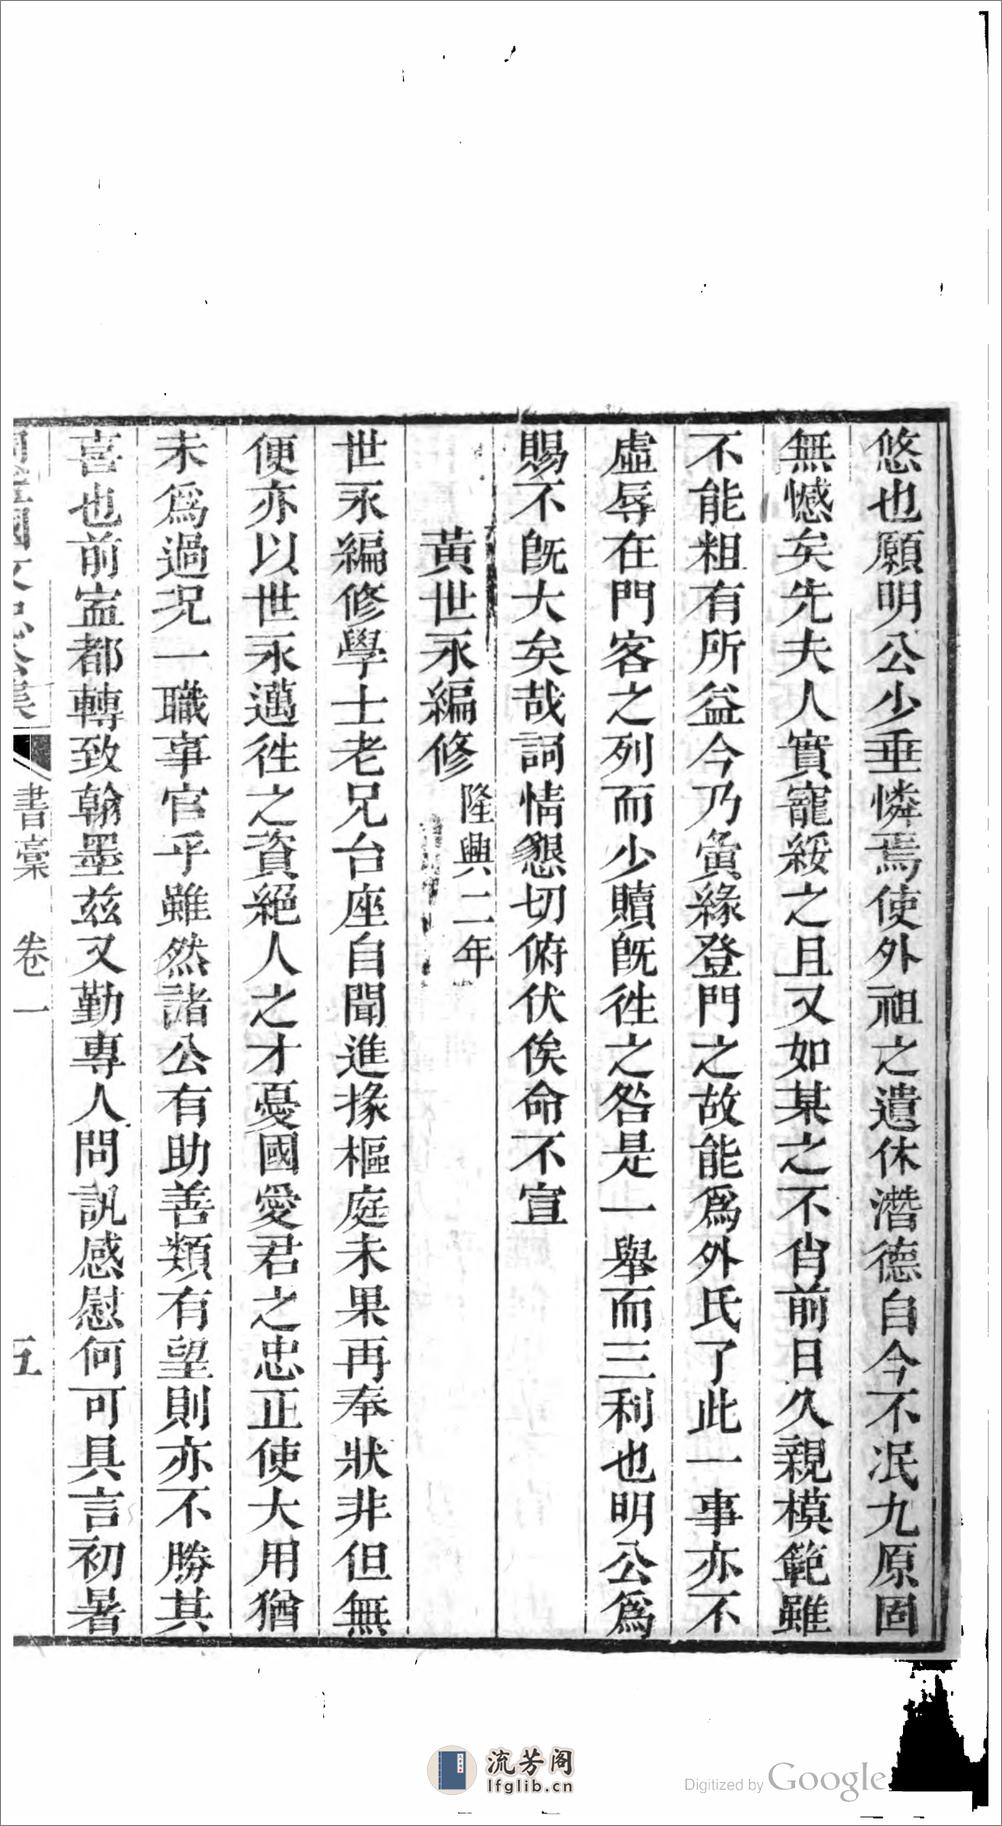 悠也願明公少垂憐焉使外祖之遺休潛德自今不泯九原固
無憾矣先夫人實寵綏之且又如某之不肖前日久親模範雖
不能粗有所益今乃夤緣登門之故能爲外氏了此一事亦不
虛辱在門客之列而少贖旣徃之咎是一舉而三利也明公爲
賜不旣大矣哉詞情懇切俯伏俟命不宣
黃世永編修隆興二年
世永編修學士老兄台座自聞進掾樞庭未果再奉狀非但無
便亦以世永邁徃之資絕人之才憂國愛君之忠正使大用猶
未爲過況一職事官乎雖然諸公有助善類有望則亦不勝其
喜也前寍都轉致翰墨茲又勤專人問訊感慰何可具言初暑
國文忠公集 書稾 卷一 五
流芳阁
lfglib.cn
Digitized by Google